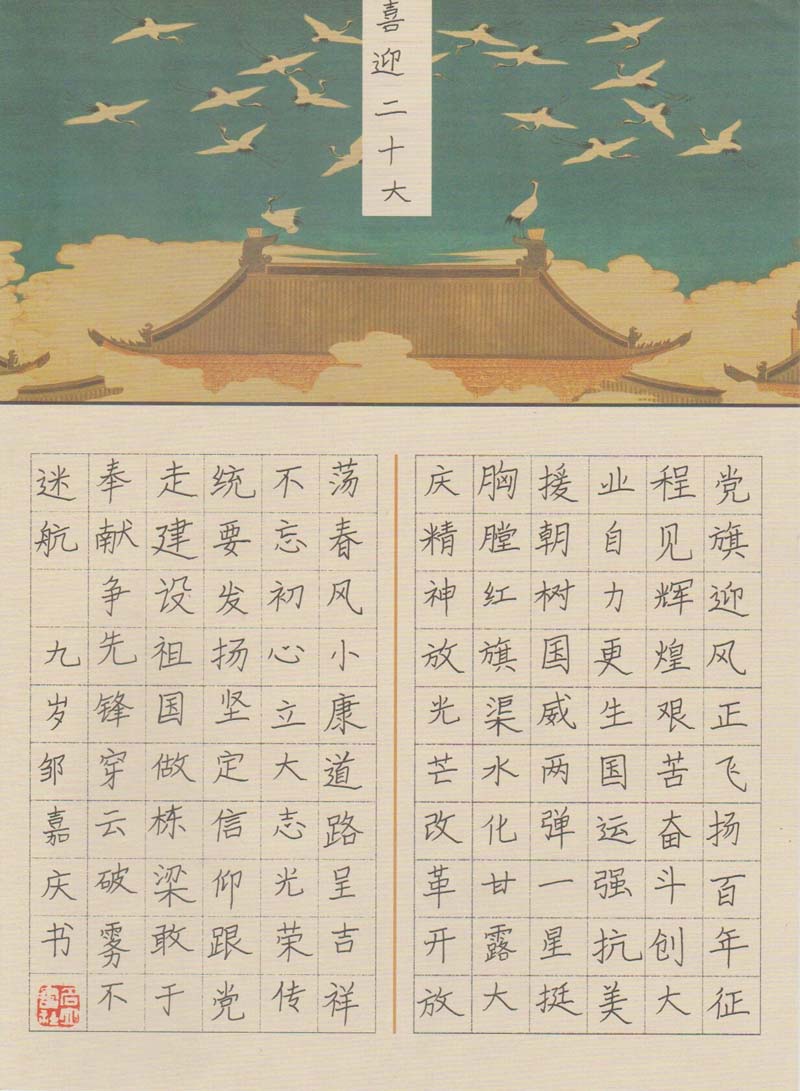 喜迎二十大
党旗迎风正飞扬百年征
程见辉煌艰苦奋斗创大
业自力更生国运强抗美
援朝树国威两弹一星挺
胸膛红旗渠水化甘露大
庆精神放光芒改革开放
荡春风小康道路呈吉祥
不忘初心立大志光荣传
统要发扬坚定信仰跟党
走建设祖国做栋梁敢于
奉献争先锋穿云破雾不
迷航 九岁邹嘉庆书